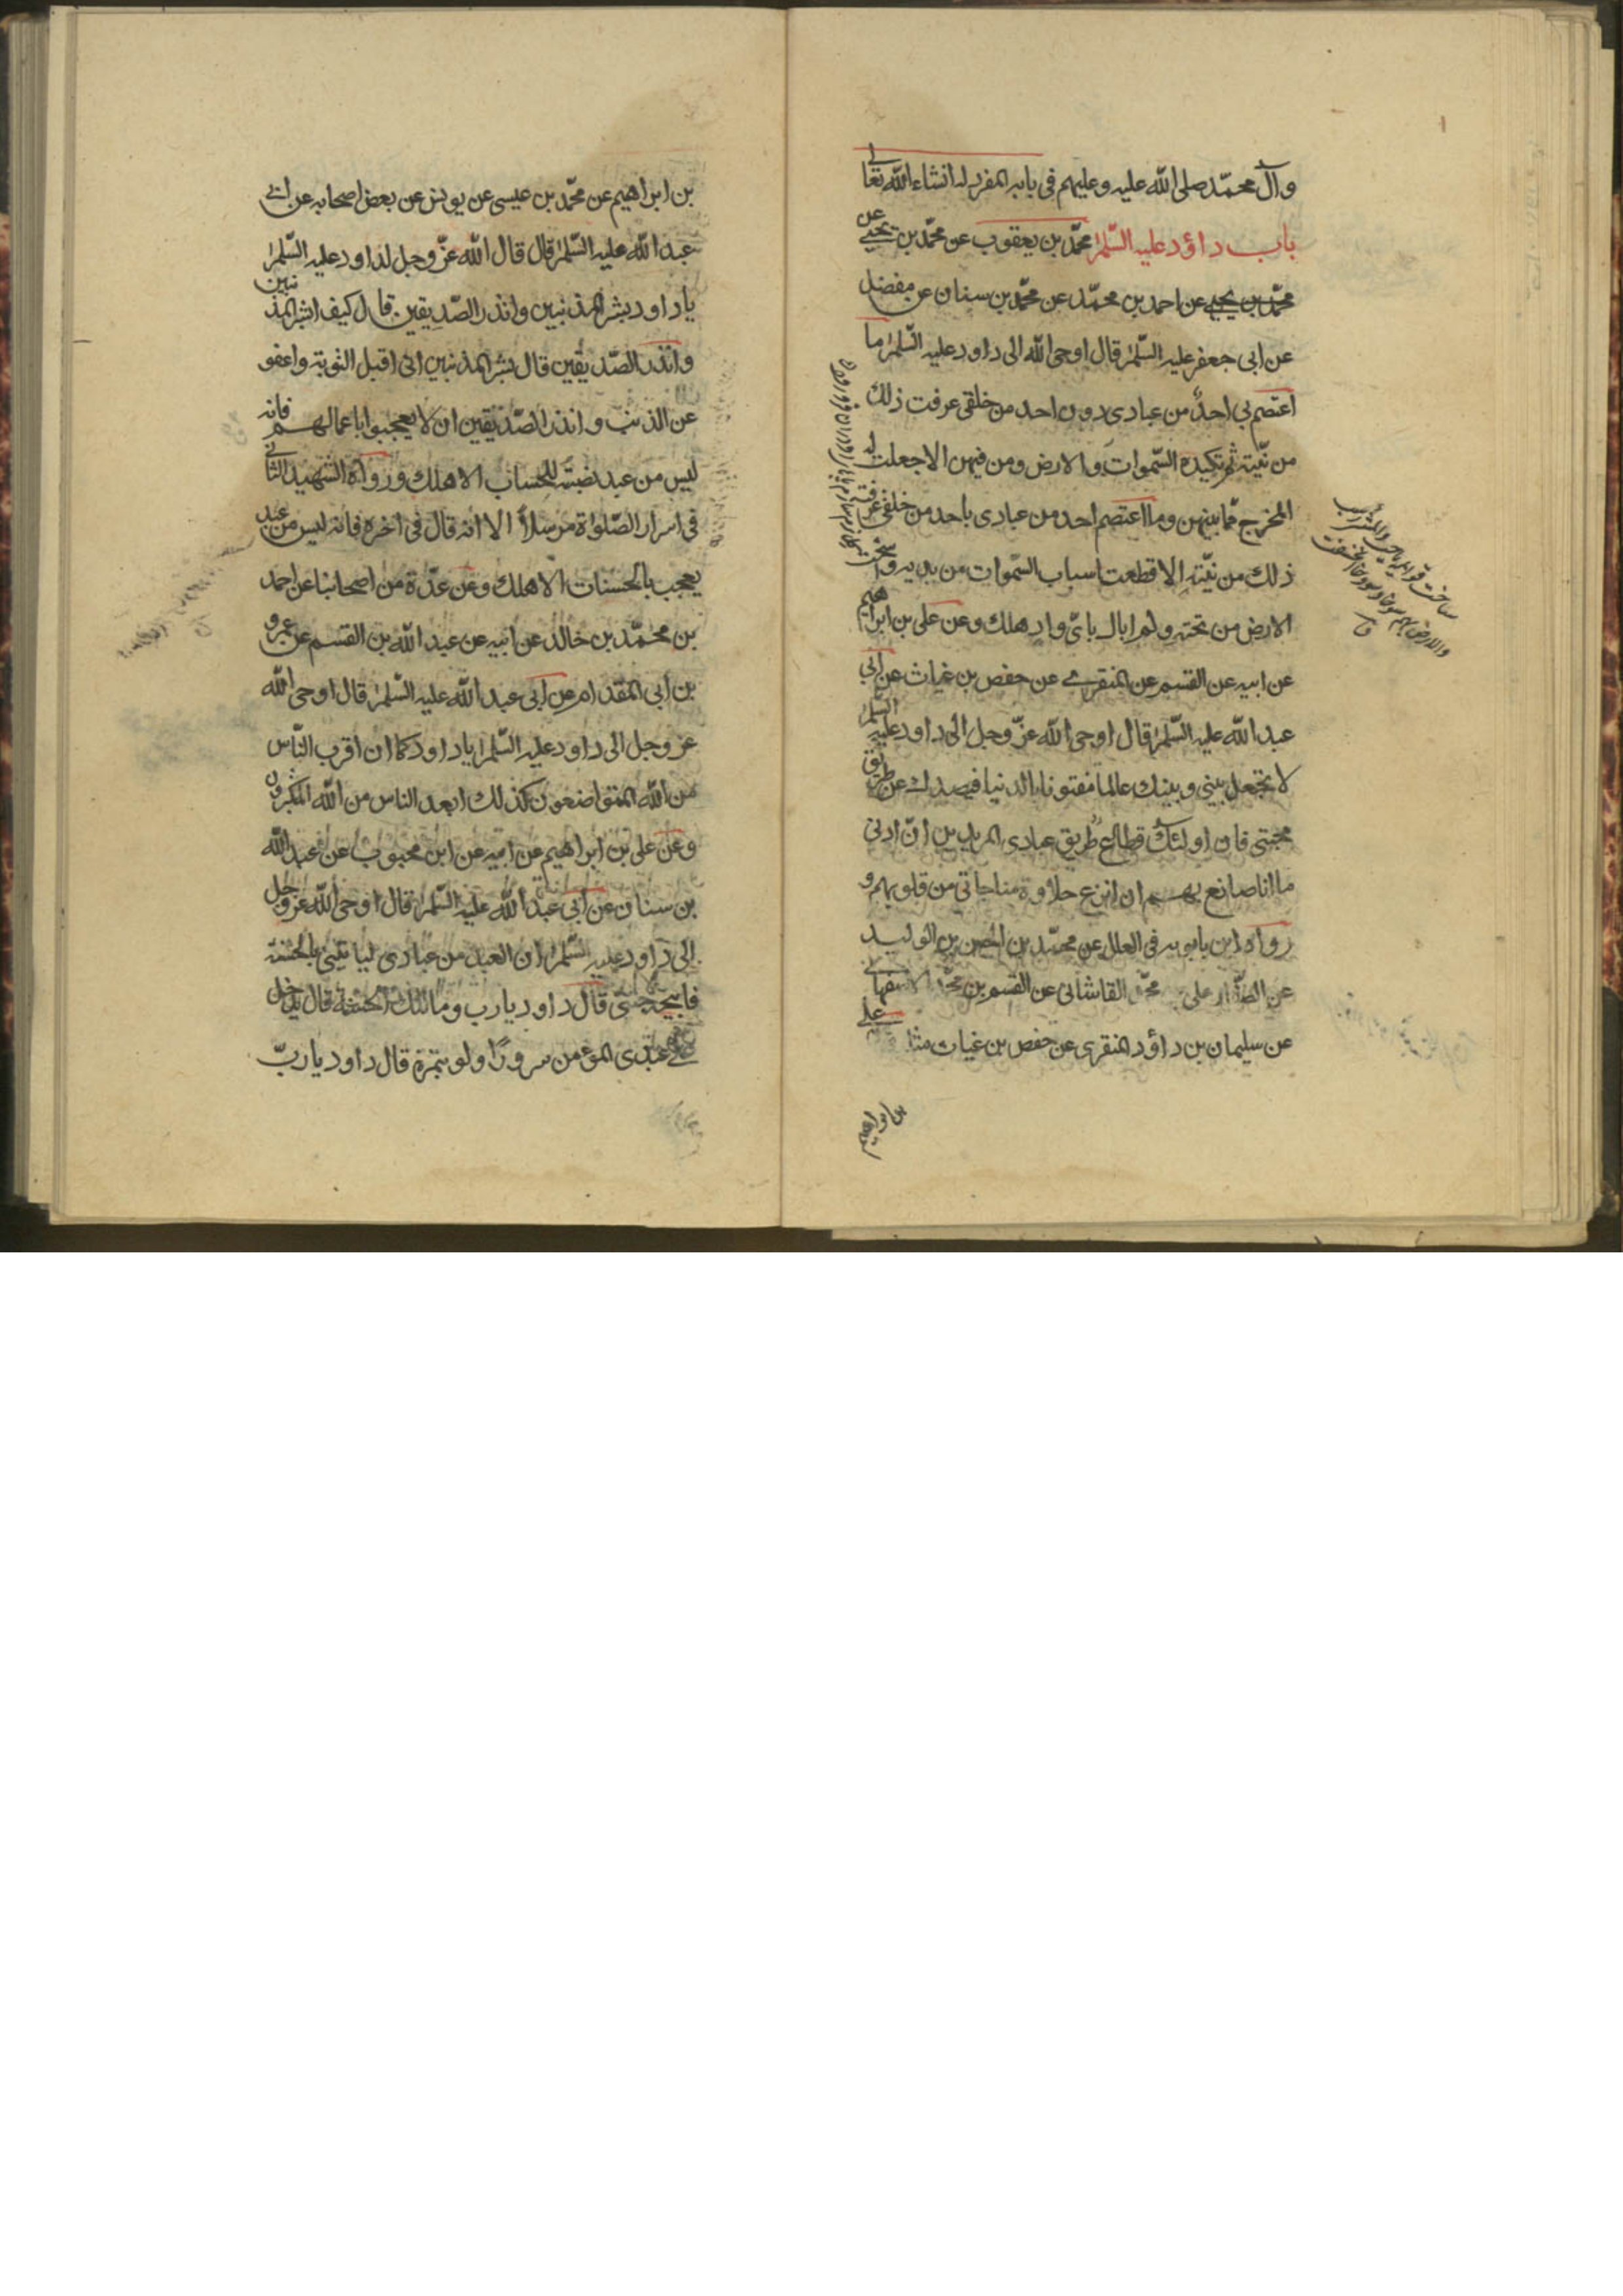 وآل محمّد صلى الله عليه وعليهم في بابه المفرد له انشاء الله تعالى
باب داؤد عليه السّلم محمّد بن يعقوب عن محمّد بن يحيى عن
محمّد بن يحيى عن احمد بن محمّد عن محمّد بن سنان عن مفضل
عن ابى جعفر عليه السّلم قال اوحى الله الى داود عليه السّلم ما
اعتصم بي احدٌ من عبادى دون احد من خلقى عرفت ذلك
من نيّته ثم تكيده السّموات والارض ومن فيهن الا جعلت له
المخرج ممّا بينهن وما اعتصم احد من عبادى باحد من خلقى عرفت
ذلك من نيّته الا قطعت اسباب السّموات من يديه واسخت
الارض من تحته ولم ابال باىّ واد هلك وعن على بن ابراهيم
عن ابيه عن القسم عن المنقرى عن حفص بن غياث عن ابي
عبد الله عليه السّلم قال اوحى الله عزّ وجل الى داود عليه السّلم
لا تجعل بيني وبينك عالما مفتونا بالدنيا فيصدك عن طريق
محبتى فان اولئك قطاع طريق عبادى المريدين انّ ادنى
ما انا صانع بهم ان انزع حلاوة مناجاتى من قلوبهم و
رواه ابن بابويه فى العلل عن محمّد بن الحسن بن الوليد
عن الصفّار على محمّد القاشانى عن القسم بن محمّد الاصفهانى
عن سليمان بن داؤد المنقرى عن حفص بن غياث مثله على
بن ابراهيم
بن ابراهيم عن محمّد بن عيسى عن يونس عن بعض اصحابه عن ابي
عبد الله عليه السّلم قال قال الله عزّ وجل لداود عليه السّلم
يا داود بشر المذنبين وانذر الصّديقين قال كيف ابشر المذنبين
وانذر الصّديقين قال بشر المذنبين انى اقبل التوبة واعفو
عن الذنب وانذر الصّديقين ان لا يعجبوا باعمالهم فانه
ليس من عبد نصبته للحساب الا هلك ورواه الشهيد الثانى
فى اسرار الصّلواة مرسلاً الا انه قال فى اخره فانه ليس من عبد
يعجب بالحسنات الا هلك وعن عدّة من اصحابنا عن احمد
بن محمّد بن خالد عن ابيه عن عبد الله بن القسم عن عمرو
بن ابى المقدام عن ابى عبد الله عليه السّلم قال اوحى الله
عز وجل الى داود عليه السّلم يا داود كما ان اقرب النّاس
من الله المتواضعون كذلك ابعد الناس من الله المتكبرون
وعن على بن ابراهيم عن ابيه عن ابن محبوب عن عبد الله
بن سنان عن ابى عبد الله عليه السّلم قال اوحى الله عز وجل
الى داود عليه السّلم ان العبد من عبادى ليأتينى بالحسنة
فابيحه جنتى قال داود يا رب وما تلك الحسنة قال يدخل
على عبدى المؤمن سرورًا ولو بتمرة قال داود يا ربّ